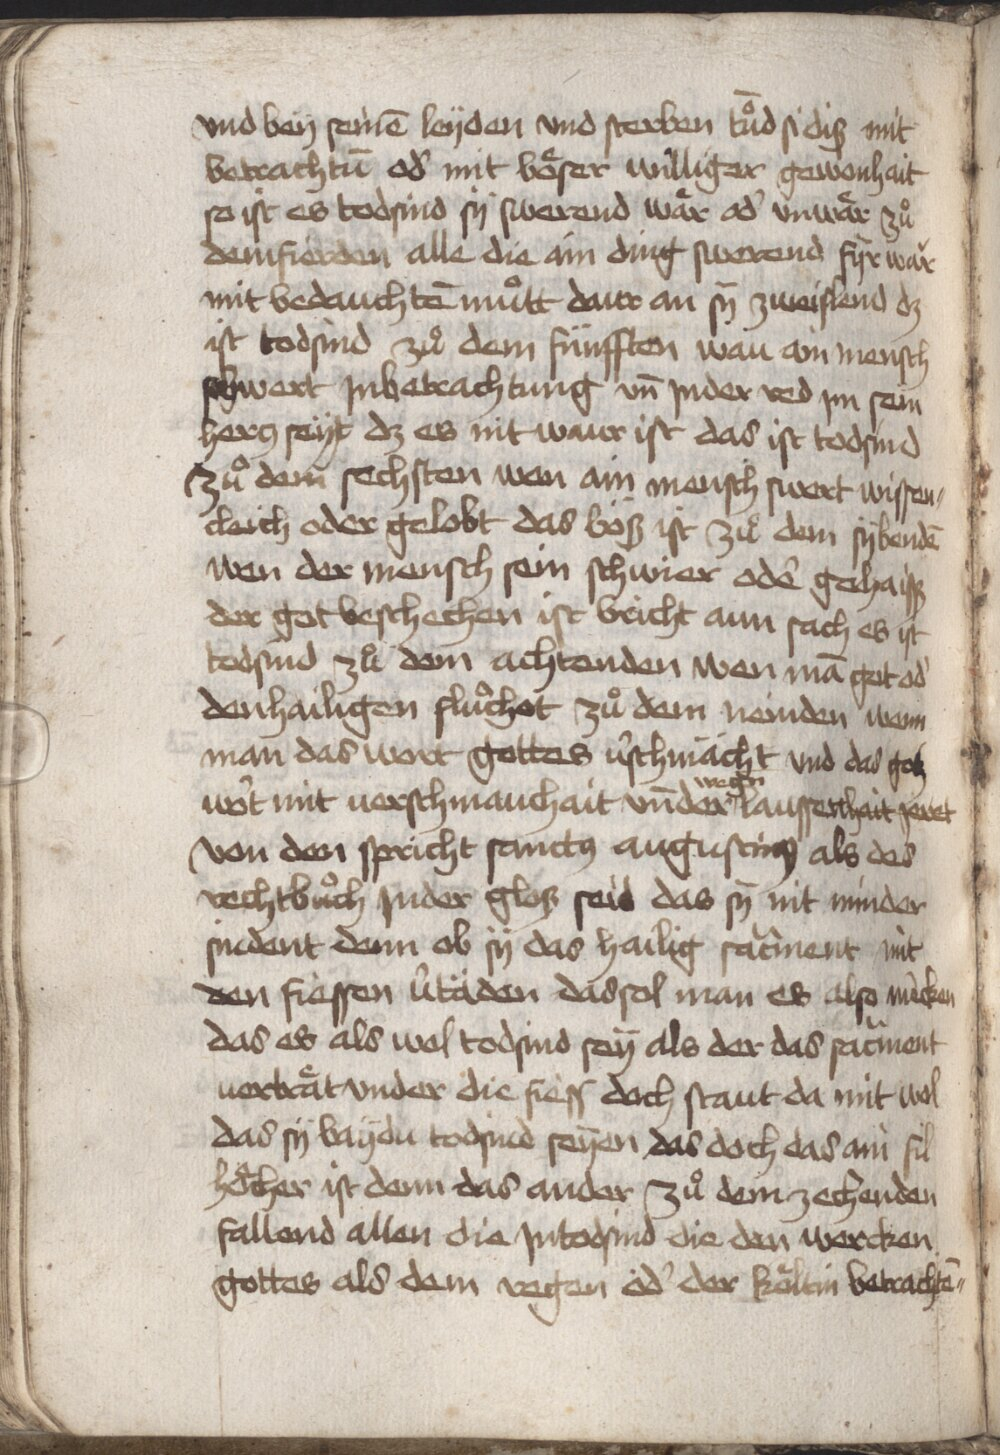 vnd beÿ seinē leÿden vnd sterben tuͦ̄d si diß mit
betrachtū od' mit boͤser williger gewonhait
so ist es todsind sÿ swerend waͤr od' vnwaͤr zuͦ
dem fierden alle die ain ding swerend fÿr waͤr
mit bedauchtē muͦtt daur an sÿ zweiflend dz
ist todsind zuͦ dem fünfften wan ain mensch
schwert Jn betrachtung vn̄ Jn der red im sein
hercz seÿt dz es nit waur ist das ist todsind
Zuͦ dem sechsten wen ain mensch swert wissen„
cleich oder gelobt das boͤß ist zuͦ dem sÿbendē
wen der mensch sein schwier odeˀ gehaiß
der got beschechen ist bricht aun sach es ist
todsind zuͦ dem achtenden wen mā got od'
den hailigen fluͦchet zuͦ dem neinden wenn
man das wort gottes v̂schmächt vnd das gotz
wôt mit uerschmauchait vn̄ der wegen laussenhait heret
Von den spricht sanctꝰ augustinꝰ als das
rechtbuͦch Jn der gloß seid das sÿ nit minder
sindent denn ob sÿ das hailig sac̄ment mit
den fiessen v̂täden das sol man es also mîcken
das es als wol todsind seÿ als der das sac̄ment
uertraͤt vnder die fiess doch staut da mit wol
das sÿ baÿdu todsind seÿen das doch das ain fil
hoͤcher ist denn das ander zuͦ dem zechenden
fallend allen die Jn todsind die den wercken
gottes als dem regen od' der keltin betrachtē„